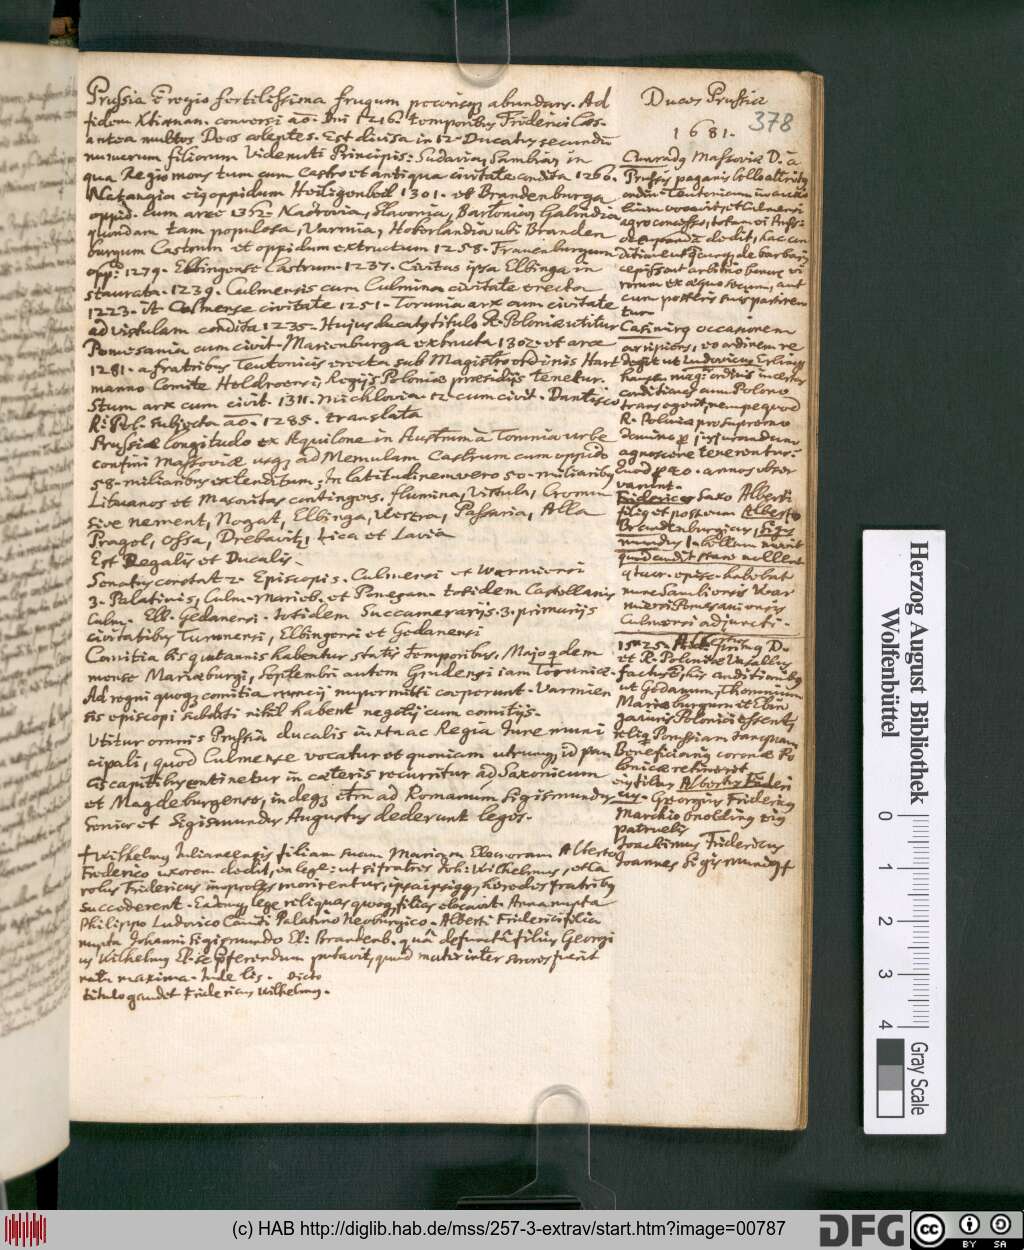 Prussia ē regio fertilissima frugum pecorisq abundans. Ad
fidem Xtianam conversi ao. Dni 1216 temporibus Friderici Cæs.
antea multos Deos colentes. Est divisa in 12 Ducatus secundū
numerum filiorum Videnuti Principis: Sudavia, Sambia, in
qua Regiomons tum cum Castro et antiqua civitate condita 1260.
Natangia eiq oppidum Heiligenbeil 1301. et Brandenburga
oppid. cum arce 1362. Nadrovia, Slavonia, Bartonia, Galindia
quondam tam populosa, Varmia, Hoberlandia ubi Branden
burgum Castrum et oppidum extructum 1255. Frauenburgum
opp: 1279. Elbingense Castrum 1237. Civitas ipsa Elbinga in
staurata 1239. Culmensis cum Culmina civitate erecta
1223. it Colmense civitate 1251. Torunia arx cum civitate
ad vistulam condita 1235. Hujus ducatq titulo R. Poloniæ utitur
Pomesania cum civit. Marienburga extructa 1302. et arce
1281. a fratribus Teutonicis erecta sub Magistro ordinis Hart
manno Comite Heldroensi, Regijs Poloniæ præsidijs tenetur.
Stum arx cum civit. 1311. Michlovia 12 cum civit. Dantisco
R. Pol. subjecta ao. 1285. translata
Prussiæ longitudo ex Aquilone in Austrum à Torunia urbe
confini Massoviæ usq ad Memulam Castrum cum oppido
58. miliaribus extenditum; In latitudinem vero 50. miliaribq
Lituanos et Masovitas contingens. flumina, Vistula, Cronum
sive nement, Nogat, Elbinga, Vesera, Passaria, Alla
Pragol, Ossa, Drebavitz, Lica et Lavia
Est Regalis et Ducalis.
Senatus constat 2. Episcopis. Culmensi et Warmiensi
3. Palatinis, Culm. Marieb. et Pomesan. totidem Castellanis
Culm. Elb. Gedanensi. totidem Succamerarijs. 3. primarijs
civitatibus Turunensi, Elbingensi et Gedanensi
Comitia bis quotannis habentur statis temporibus, Majo qdem
mense Mariæburgi, Septembri autem Grudensi iam Toruniæ.
Ad regni quoq comitia nuncij nuper mitti coeperunt. Varmien
sis episcopi subditi nihil habent negotij cum comitijs.
Utitur omnis Prussia ducalis iuxta ac Regia Jure muni
cipali, quod Culmense vocatur et quoniam utrumq id pau
cis capitibus continetur in cæteris recurritur ad Saxonicum
et Magdeburgense, indeq etm ad Romanum Sigismundus
Senior et Sigismundus Augustus dederunt leges.
+ Wilhelmq Juliacensis filiam suam Mariam Eleonoram Alberto
Frederico uxorem dedit, ea lege: ut si fratres Joh: Wilhelmus, et Ca
rolus Fridericus improles morirentur, ipsa ipsiq heredes fratribq
succederent. Eademq lege reliquas quoq filias elocavit. Anna nupta
Philippo Ludovico Comiti Palatino Neoburgico. Alberti Friderici filia
nupta Johanni Sigismundo El: Brandenb. quâ defunctâ filius Georgi
us Wilhelmq El. se pferendum putavit, quod mater inter sorores fuerit
natu maxima. Inde lis. Dicto
titulo gaudet Fridericus Wilhelmq.
Duces Prussiæ
1681.
378
Cunradq Massoviæ D. à
Prussis paganis bello attritq
ordinē Teutonicum in auxi
lium vocavit, et Culmensi
agro concesso, totam ei Prussi
dedit, hac con
ditione ut quicq de barbaris
cepissent arbitrio bonor vi
rorum ex æquo secum, aut
cum posteris suis partiren
tur.
Casimirq occasionem
arripiens, eo ordinem re
degit ut Ludovicus Erlings
hausen mag: ordinis in certas
conditiones cum Polono
transegerit, nempe quod
R. Poloniæ pro supremo
domino p jusjurandum
agnoscere tenerentur:
quod p 40. annos obser
varunt.
Fridericus Saxo Alberti
filiq et postea eum Albertq
Brandenburgicus, Sigis
mundus I. bellum movit
quod condit. stare nollent
4tuor. episc. habebat
nunc Sambiensis Var
miensi Pomesaniensis
Culmensi adjuncti.
1525. Albertus primq D.
et R. Poloniæ Vasallus
factus, his conditionibq
ut Gedanum, Thorunium
Mariæburgum et Elbin
ga juris Polonici essent,
reliq Prussiam tanquam
beneficiariq coronæ Po
lonicæ retineret
ejq filius Albertus Frideri
cus. Georgius Fridericq
Marchio Onoldinq eiq
patruelis
Joachimus Fridericus
Joannes Sigismundq +
Herzog August Bibliothek
Wolfenbüttel
0 1 2 3 4
Gray Scale
(c) HAB http://diglib.hab.de/mss/257-3-extrav/start.htm?image=00787
DFG
cc BY SA